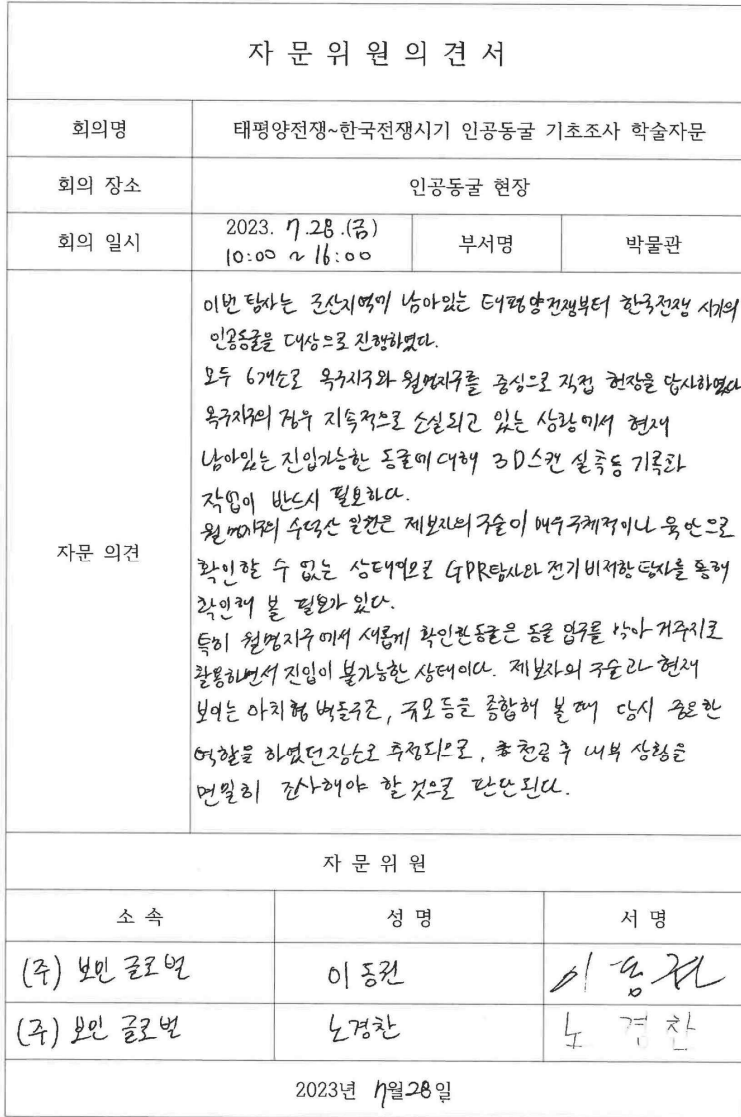 자 문 위 원 의 견 서
회의명 태평양전쟁~한국전쟁시기 인공동굴 기초조사 학술자문
회의 장소 인공동굴 현장
회의 일시 2023. 7.28.(금) 10:00 ~ 16:00 부서명 박물관
자문 의견
이번 탐사는 군산지역에 남아있는 태평양전쟁부터 한국전쟁 시기의
인공동굴을 대상으로 진행하였다.
모두 6개소로 옥구지구와 월명지구를 중심으로 직접 현장을 답사하였다
옥구지구의 경우 지속적으로 소실되고 있는 상황에서 현재
남아있는 진입가능한 동굴에 대해 3D스캔 실측등 기록과
작업이 반드시 필요하다.
월명지구의 수덕산 일원은 제보자의 구술이 매우구체적이나 육안으로
확인할 수 없는 상태이므로 GPR탐사와 전기비저항탐사를 통해
확인해 볼 필요가 있다.
특히 월명지구에서 새롭게 확인한동굴은 동굴 입구를 막아 거주지로
활용하면서 진입이 불가능한 상태이다. 제보자의 구술과 현재
보이는 아치형 벽돌구조, 규모등을 종합해 볼 때 당시 중요한
역할을 하였던 장소로 추정되므로, 천공 후 내부 상황을
면밀히 조사해야 할 것으로 판단된다.
자 문 위 원
소 속 성 명 서 명
(주) 보민 글로벌 이동권 이동권
(주) 보민 글로벌 노경찬 노경찬
2023년 7월28일